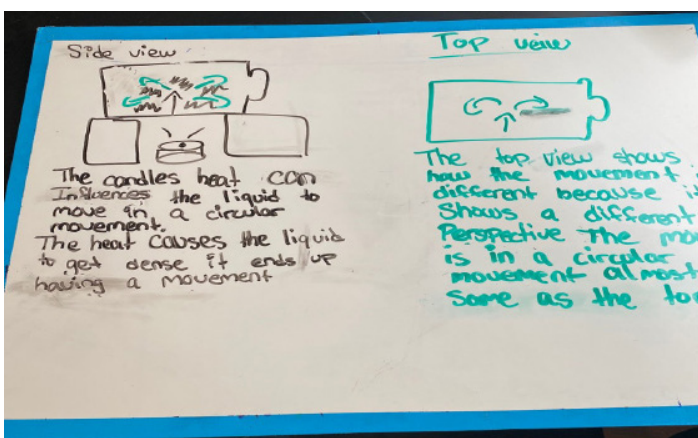 Side view
The candles heat can
Influences the liquid to
move in a circular
movement.
The heat causes the liquid
to get dense it ends up
having a movement
Top veiw
The top view shows
how the movement
different because
Shows a different
Perspective The
is in a circular
movement almost
Same as the